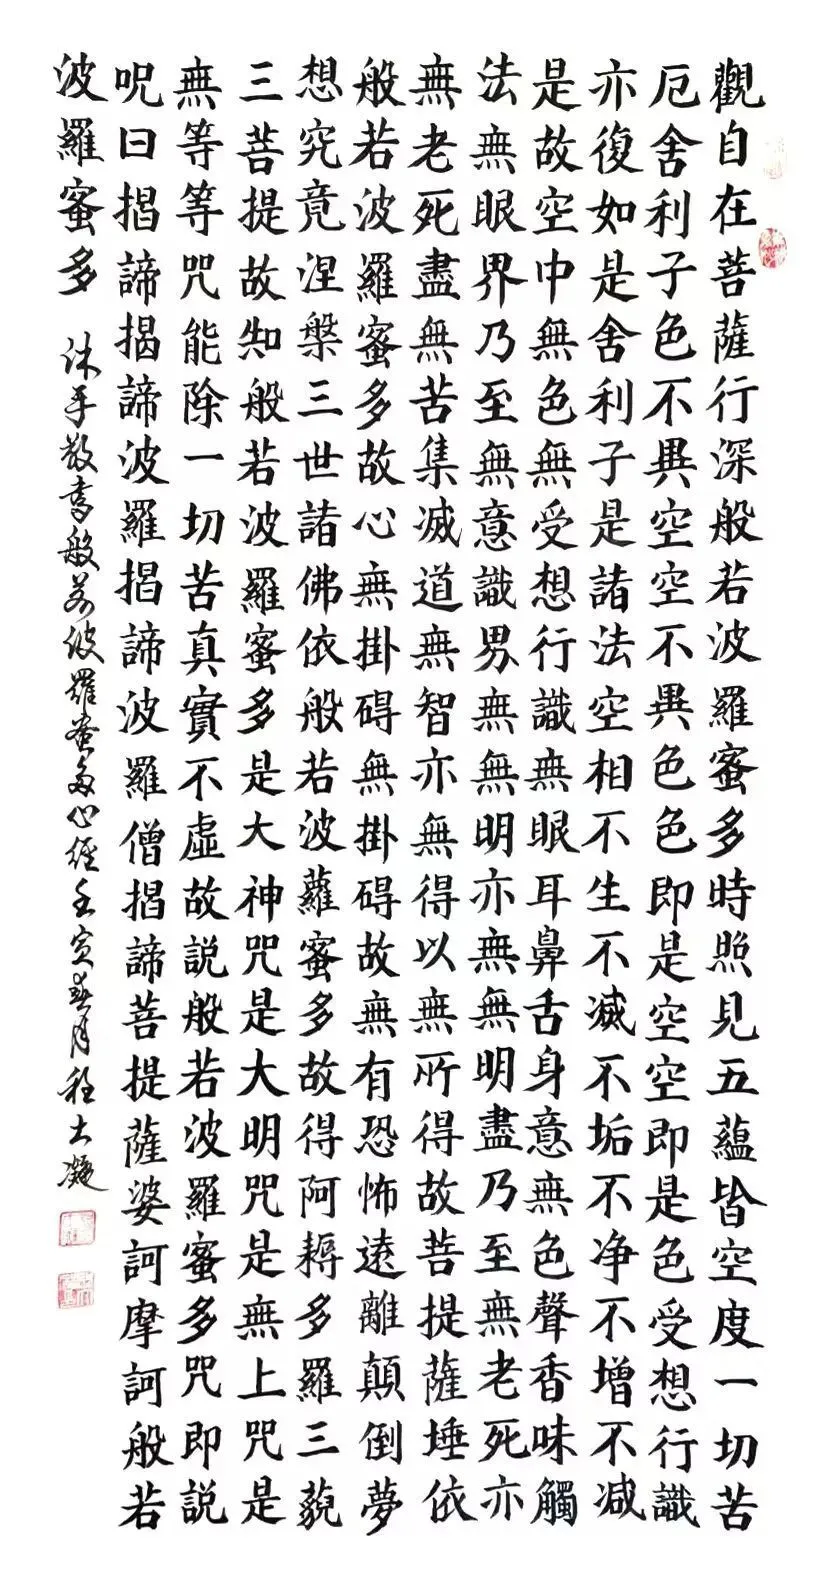 觀自在菩薩行深般若波羅蜜多時照見五蘊皆空度一切苦
厄舍利子色不異空空不異色色即是空空即是色受想行識
亦復如是舍利子是諸法空相不生不滅不垢不净不增不减
是故空中無色無受想行識無眼耳鼻舌身意無色聲香味觸
法無眼界乃至無意識界無無明亦無無明盡乃至無老死亦
無老死盡無苦集滅道無智亦無得以無所得故菩提薩埵依
般若波羅蜜多故心無掛碍無掛碍故無有恐怖遠離顛倒夢
想究竟涅槃三世諸佛依般若波蘿蜜多故得阿耨多羅三藐
三菩提故知般若波羅蜜多是大神咒是大明咒是無上咒是
無等等咒能除一切苦真實不虛故説般若波羅蜜多咒即説
呪曰揭諦揭諦波羅揭諦波羅僧揭諦菩提薩婆訶摩訶般若
波羅蜜多
沐手敬書般若波羅蜜多心經壬寅春月程